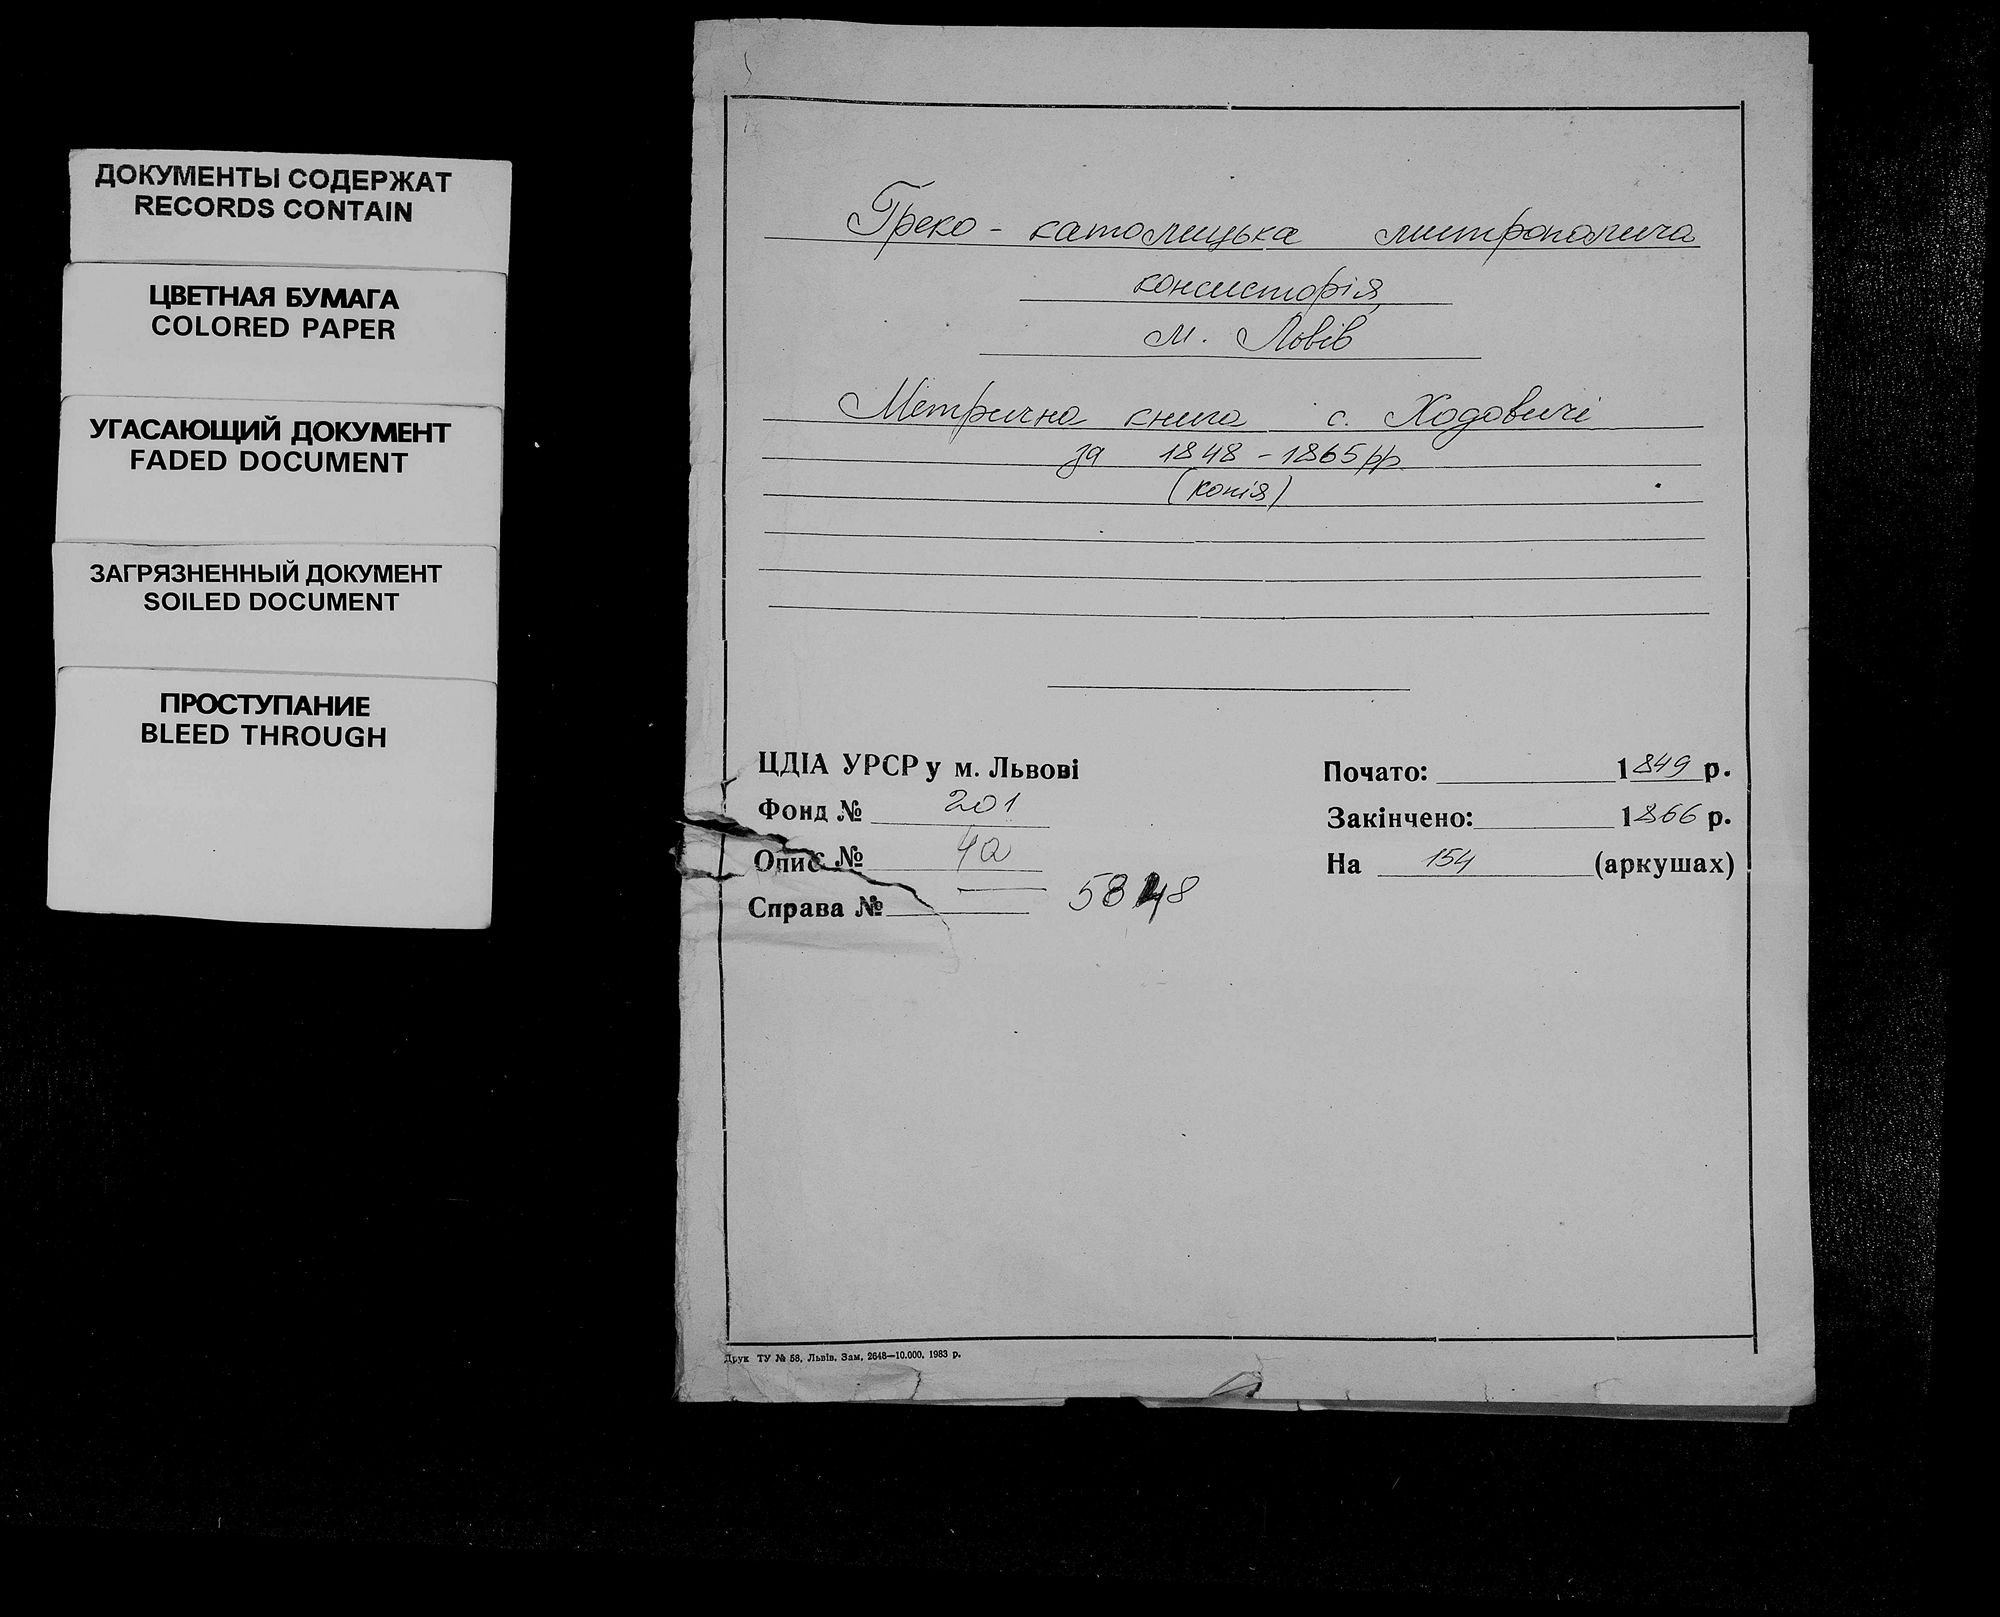 ДОКУМЕНТЫ СОДЕРЖАТ
RECORDS CONTAIN
ЦВЕТНАЯ БУМАГА
COLORED PAPER
УГАСАЮЩИЙ ДОКУМЕНТ
FADED DOCUMENT
ЗАГРЯЗНЕННЫЙ ДОКУМЕНТ
SOILED DOCUMENT
ПРОСТУПАНИЕ
BLEED THROUGH
Греко-католицька митрополича
консисторія,
м. Львів
Метрична книга с. Ходовичі
за 1848-1865 рр
(копія)
ЦДІА УРСР у м. Львові
Фонд № 201
Опис №
Справа № 5848
Почато: 1849 р.
Закінчено: 1866 р.
На 154 (аркушах)
Друк ТУ № 58, Львів, Зам, 2648—10.000. 1983 р.